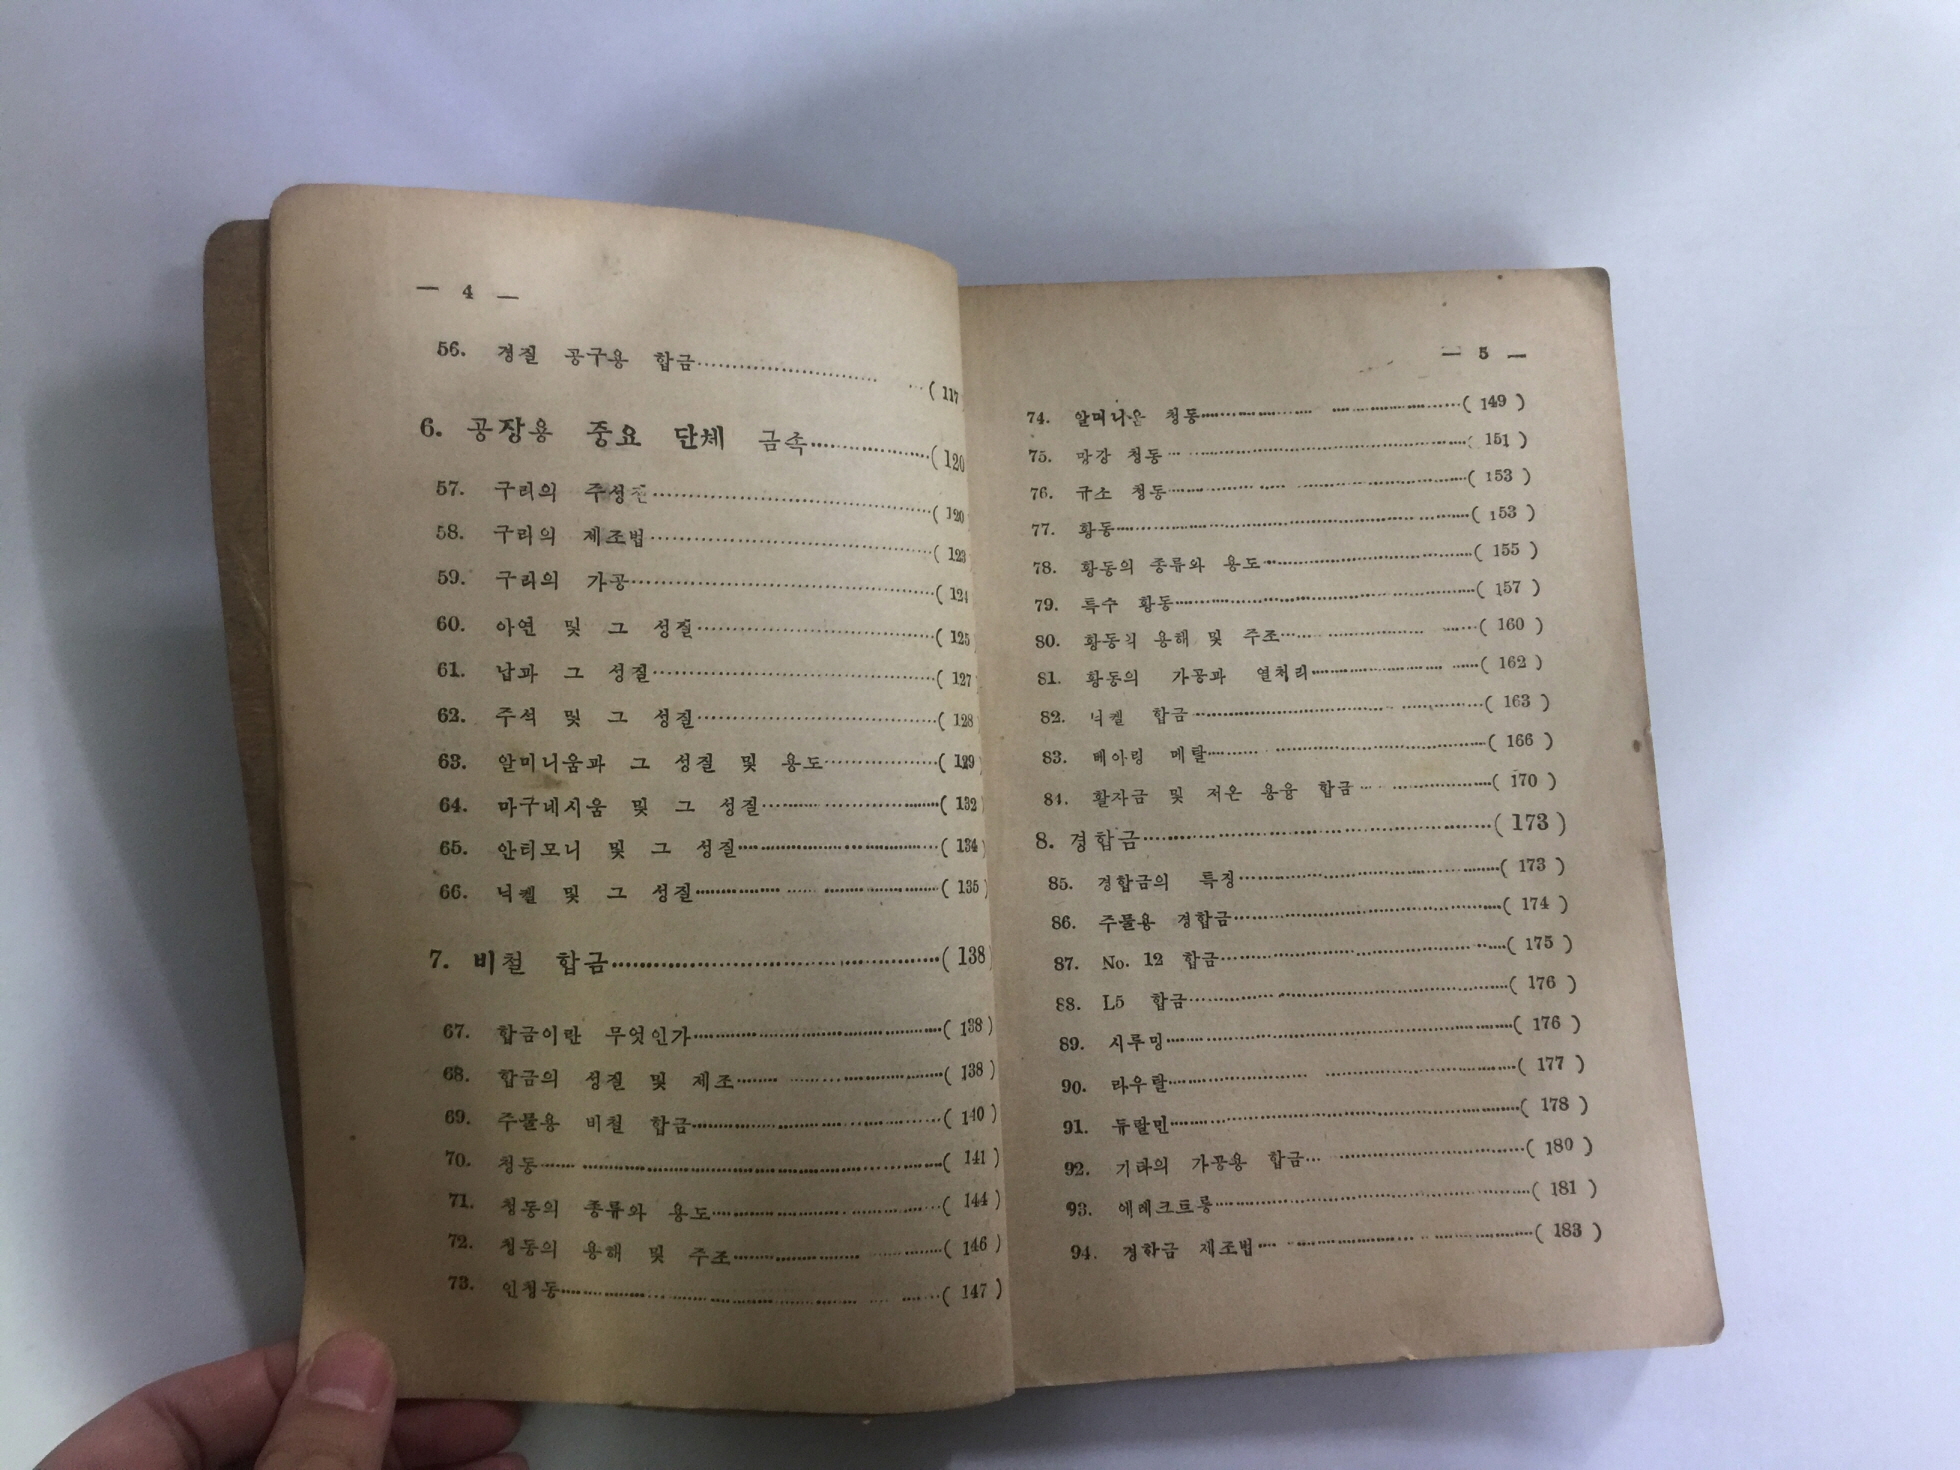 — 4 —
56. 경질 공구용 합금 ( 117
6. 공장용 중요 단체 금속 ( 120
57. 구리의 주성 ( 120
58. 구리의 제조법 ( 123
59. 구리의 가공 ( 124
60. 아연 및 그 성질 ( 125
61. 납과 그 성질 ( 127
62. 주석 및 그 성질 ( 128
63. 알미니움과 그 성질 및 용도 ( 129
64. 마구네시움 및 그 성질 ( 132
65. 안티모니 및 그 성질 ( 134
66. 닉켈 및 그 성질 ( 135
7. 비철 합금 ( 138
67. 합금이란 무엇인가 ( 138 )
68. 합금의 성질 및 제조 ( 138 )
69. 주물용 비철 합금 ( 140 )
70. 청동 ( 141 )
71. 청동의 종류와 용도 ( 144 )
72. 청동의 용해 및 주조 ( 146 )
73. 인청동 ( 147 )
— 5 —
74. 알미니움 청동 ( 149 )
75. 망강 청동 ( 151 )
76. 규소 청동 ( 153 )
77. 황동 ( 153 )
78. 황동의 종류와 용도 ( 155 )
79. 특수 황동 ( 157 )
80. 황동의 용해 및 주조 ( 160 )
81. 황동의 가공과 열처리 ( 162 )
82. 닉켈 합금 ( 163 )
83. 베아링 메탈 ( 166 )
84. 활자금 및 저온 용융 합금 ( 170 )
8. 경합금 ( 173 )
85. 경합금의 특징 ( 173 )
86. 주물용 경합금 ( 174 )
87. No. 12 합금 ( 175 )
88. L5 합금 ( 176 )
89. 시루밍 ( 176 )
90. 라우탈 ( 177 )
91. 듀랄민 ( 178 )
92. 기타의 가공용 합금 ( 180 )
93. 에레크트롱 ( 181 )
94. 경합금 제조법 ( 183 )